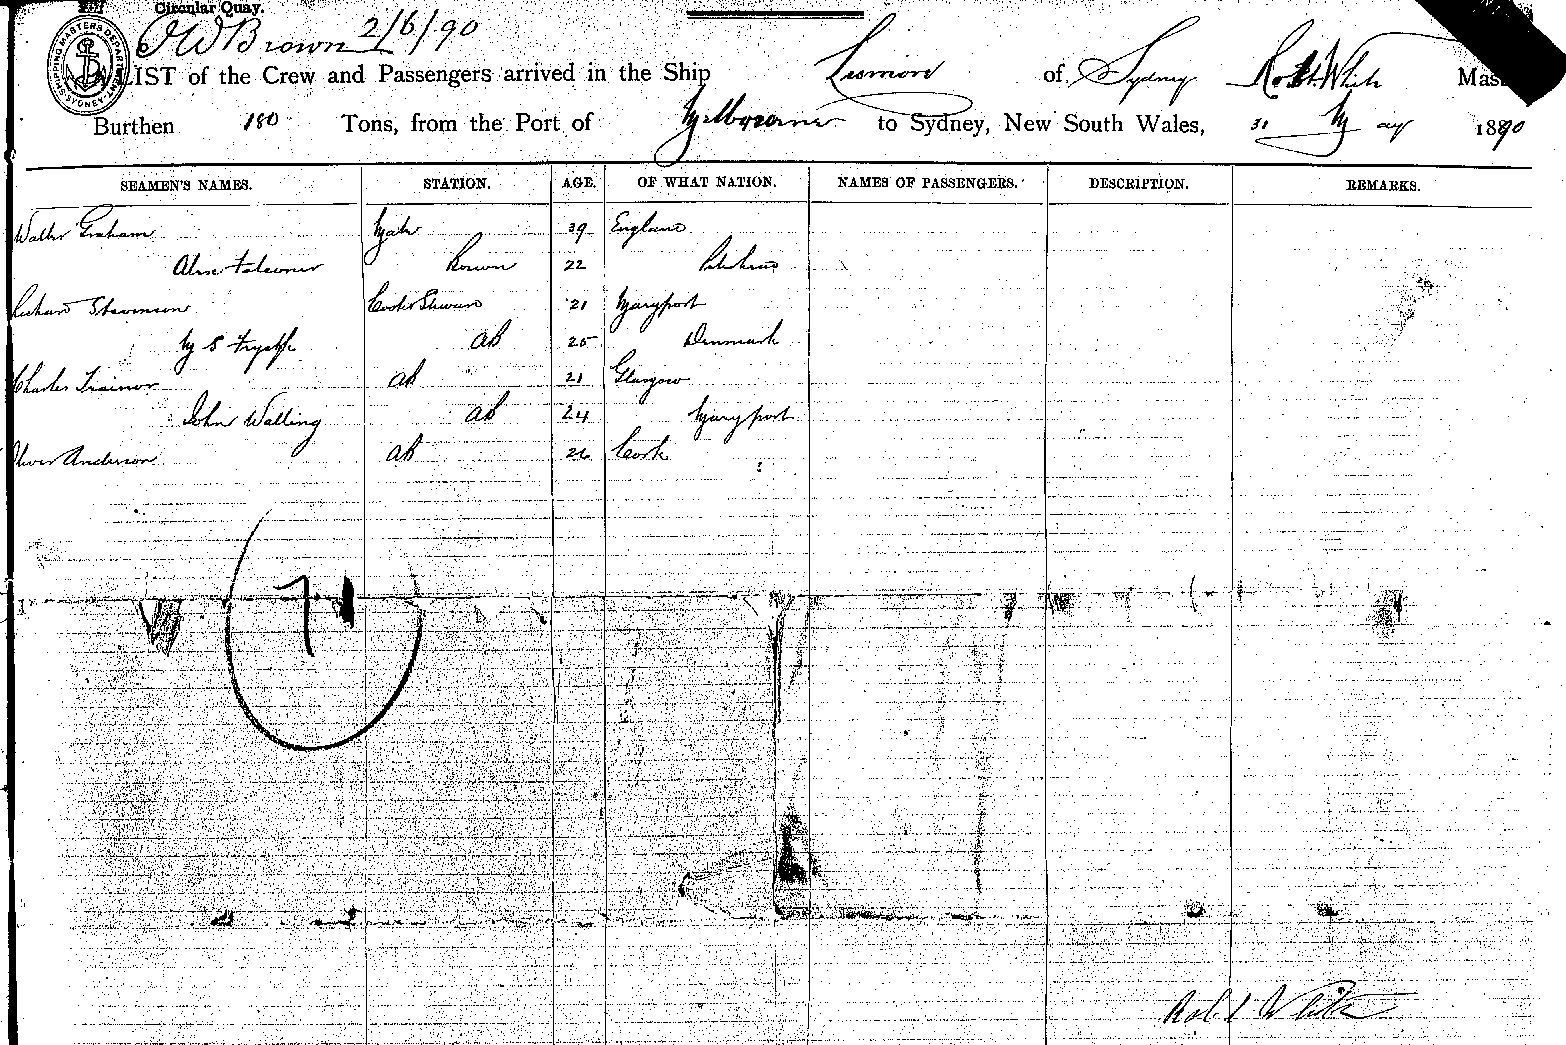 Circular Quay.
J W Brown 2/6/90
SHIPPING MASTERS DEPARTMENT. SYDNEY.
LIST of the Crew and Passengers arrived in the Ship Lismore of Sydney Robt. White Mas
Burthen 180 Tons, from the Port of Melbourne to Sydney, New South Wales, 31 May 1890
SEAMEN'S NAMES. STATION. AGE. OF WHAT NATION. NAMES OF PASSENGERS. DESCRIPTION. REMARKS.
Walter Graham Mate 39 England
Alex Falconer Bosun 22
Richard Stevenson Cook & Steward 21 Maryport
M S AB 25 Denmark
Charles Trainor AB 21 Glasgow
John Walling AB 24 Maryport
Oliver Anderson AB 26 Cork
71
Robt White